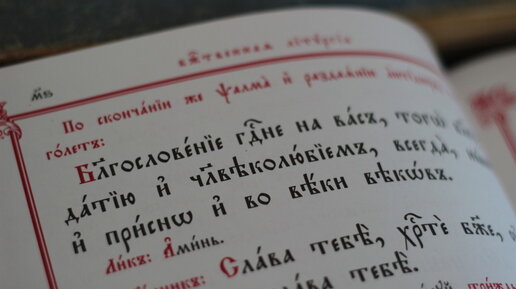 м҃в
Бж҃твеннаѧ лїтꙋргі́а
По сконча́нїи же ѱалма̀ и҆ раздаѧ́нїи
го́летъ:
Блгⷭ҇ослове́нїе гдⷭ҇не на ва́съ, тогѡ̀
да́тїю и҆ чл҃вѣколю́бїемъ, всегда̀,
и҆ при́снѡ и҆ во вѣ́ки вѣкѡ́въ.
Ли́къ: А҆ми́нь.
Сла́ва тебѣ̀, хрⷭ҇тѐ бж҃е,
сла́ва тебѣ̀.